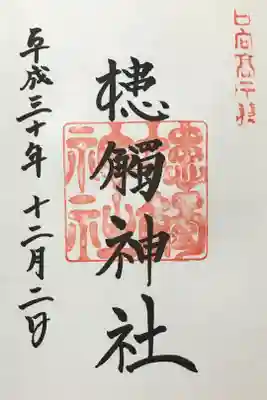 日向高千穂
槵觸神社
槵觸
神社
平成三十年 十二月二日